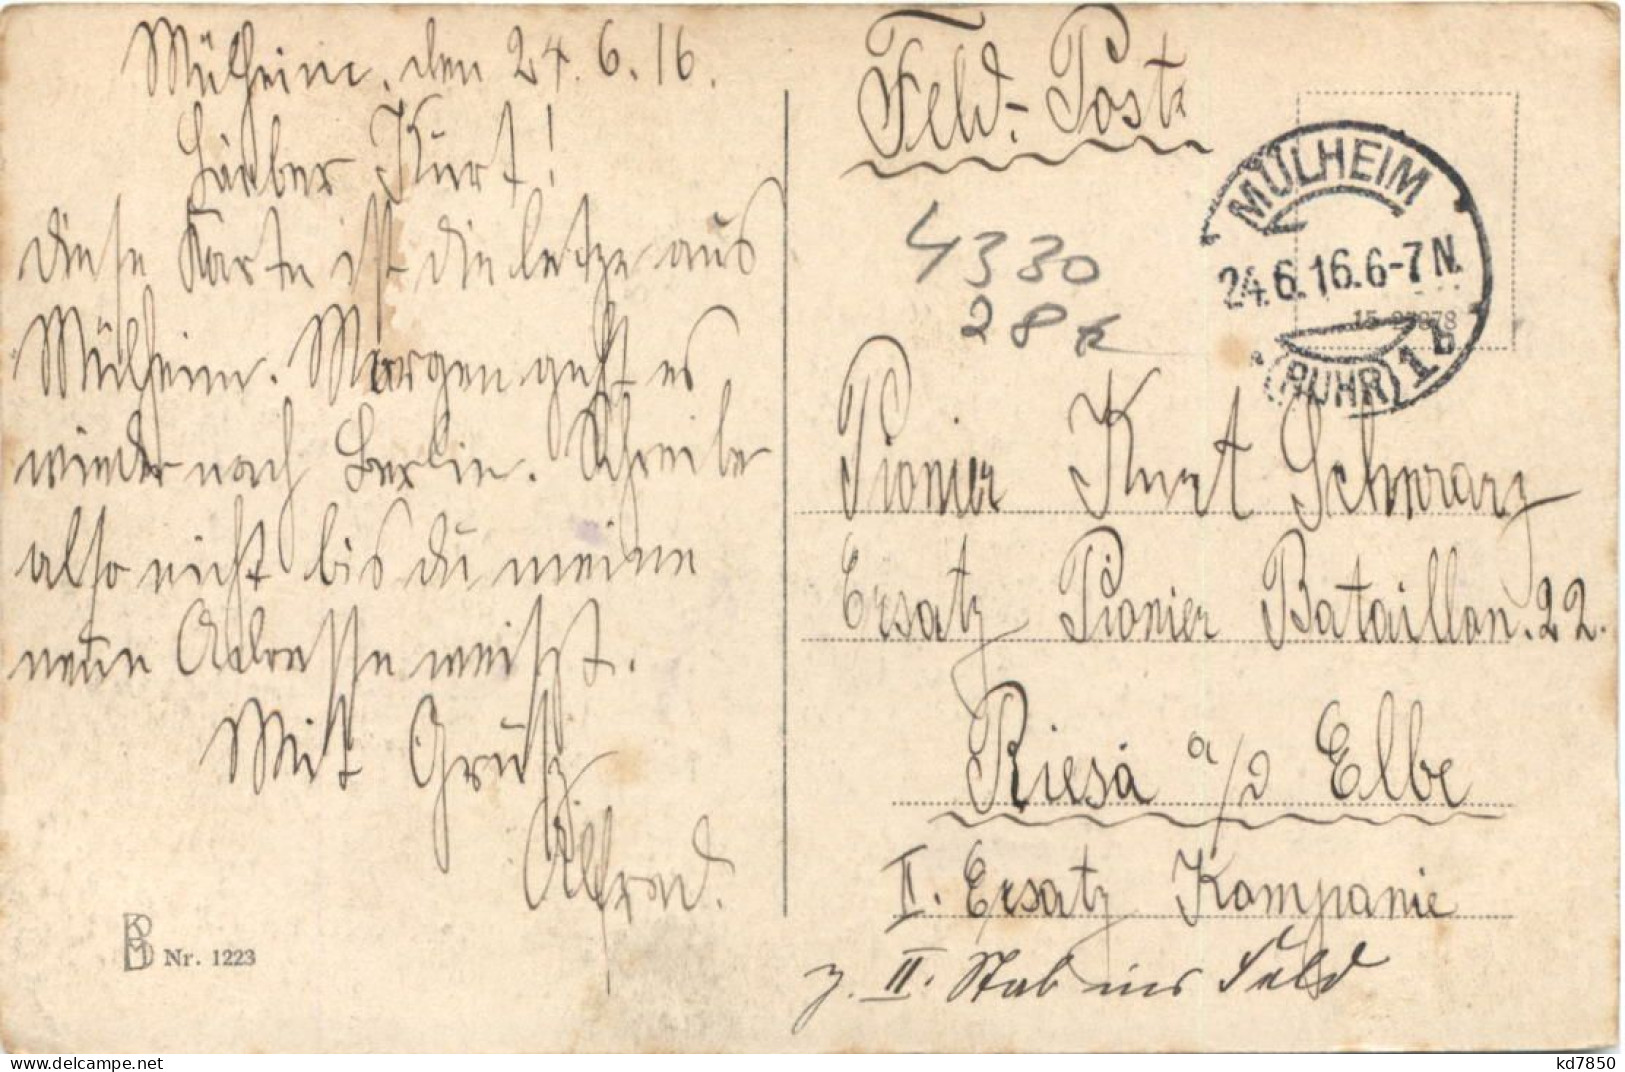 Mülheim, den 24.6.16.
Lieber Kurt!
diese Karte ist die letze aus
Mülheim. Morgen geht es
wieder nach Berlin. Schreibe
also nicht bis du meine
neue Adresse weißt.
Mit Gruß
Alfred.
BKDM Nr. 1223
Feld-Post
MÜLHEIM
24.6.16.6-7N.
(RUHR) 1 b
4330
28 k
Pionier Kurt Schwarz
Ersatz Pionier Bataillon. 22.
Riesa a/d Elbe
II. Ersatz Kompanie
z. II. Stab ins Feld
kd7850